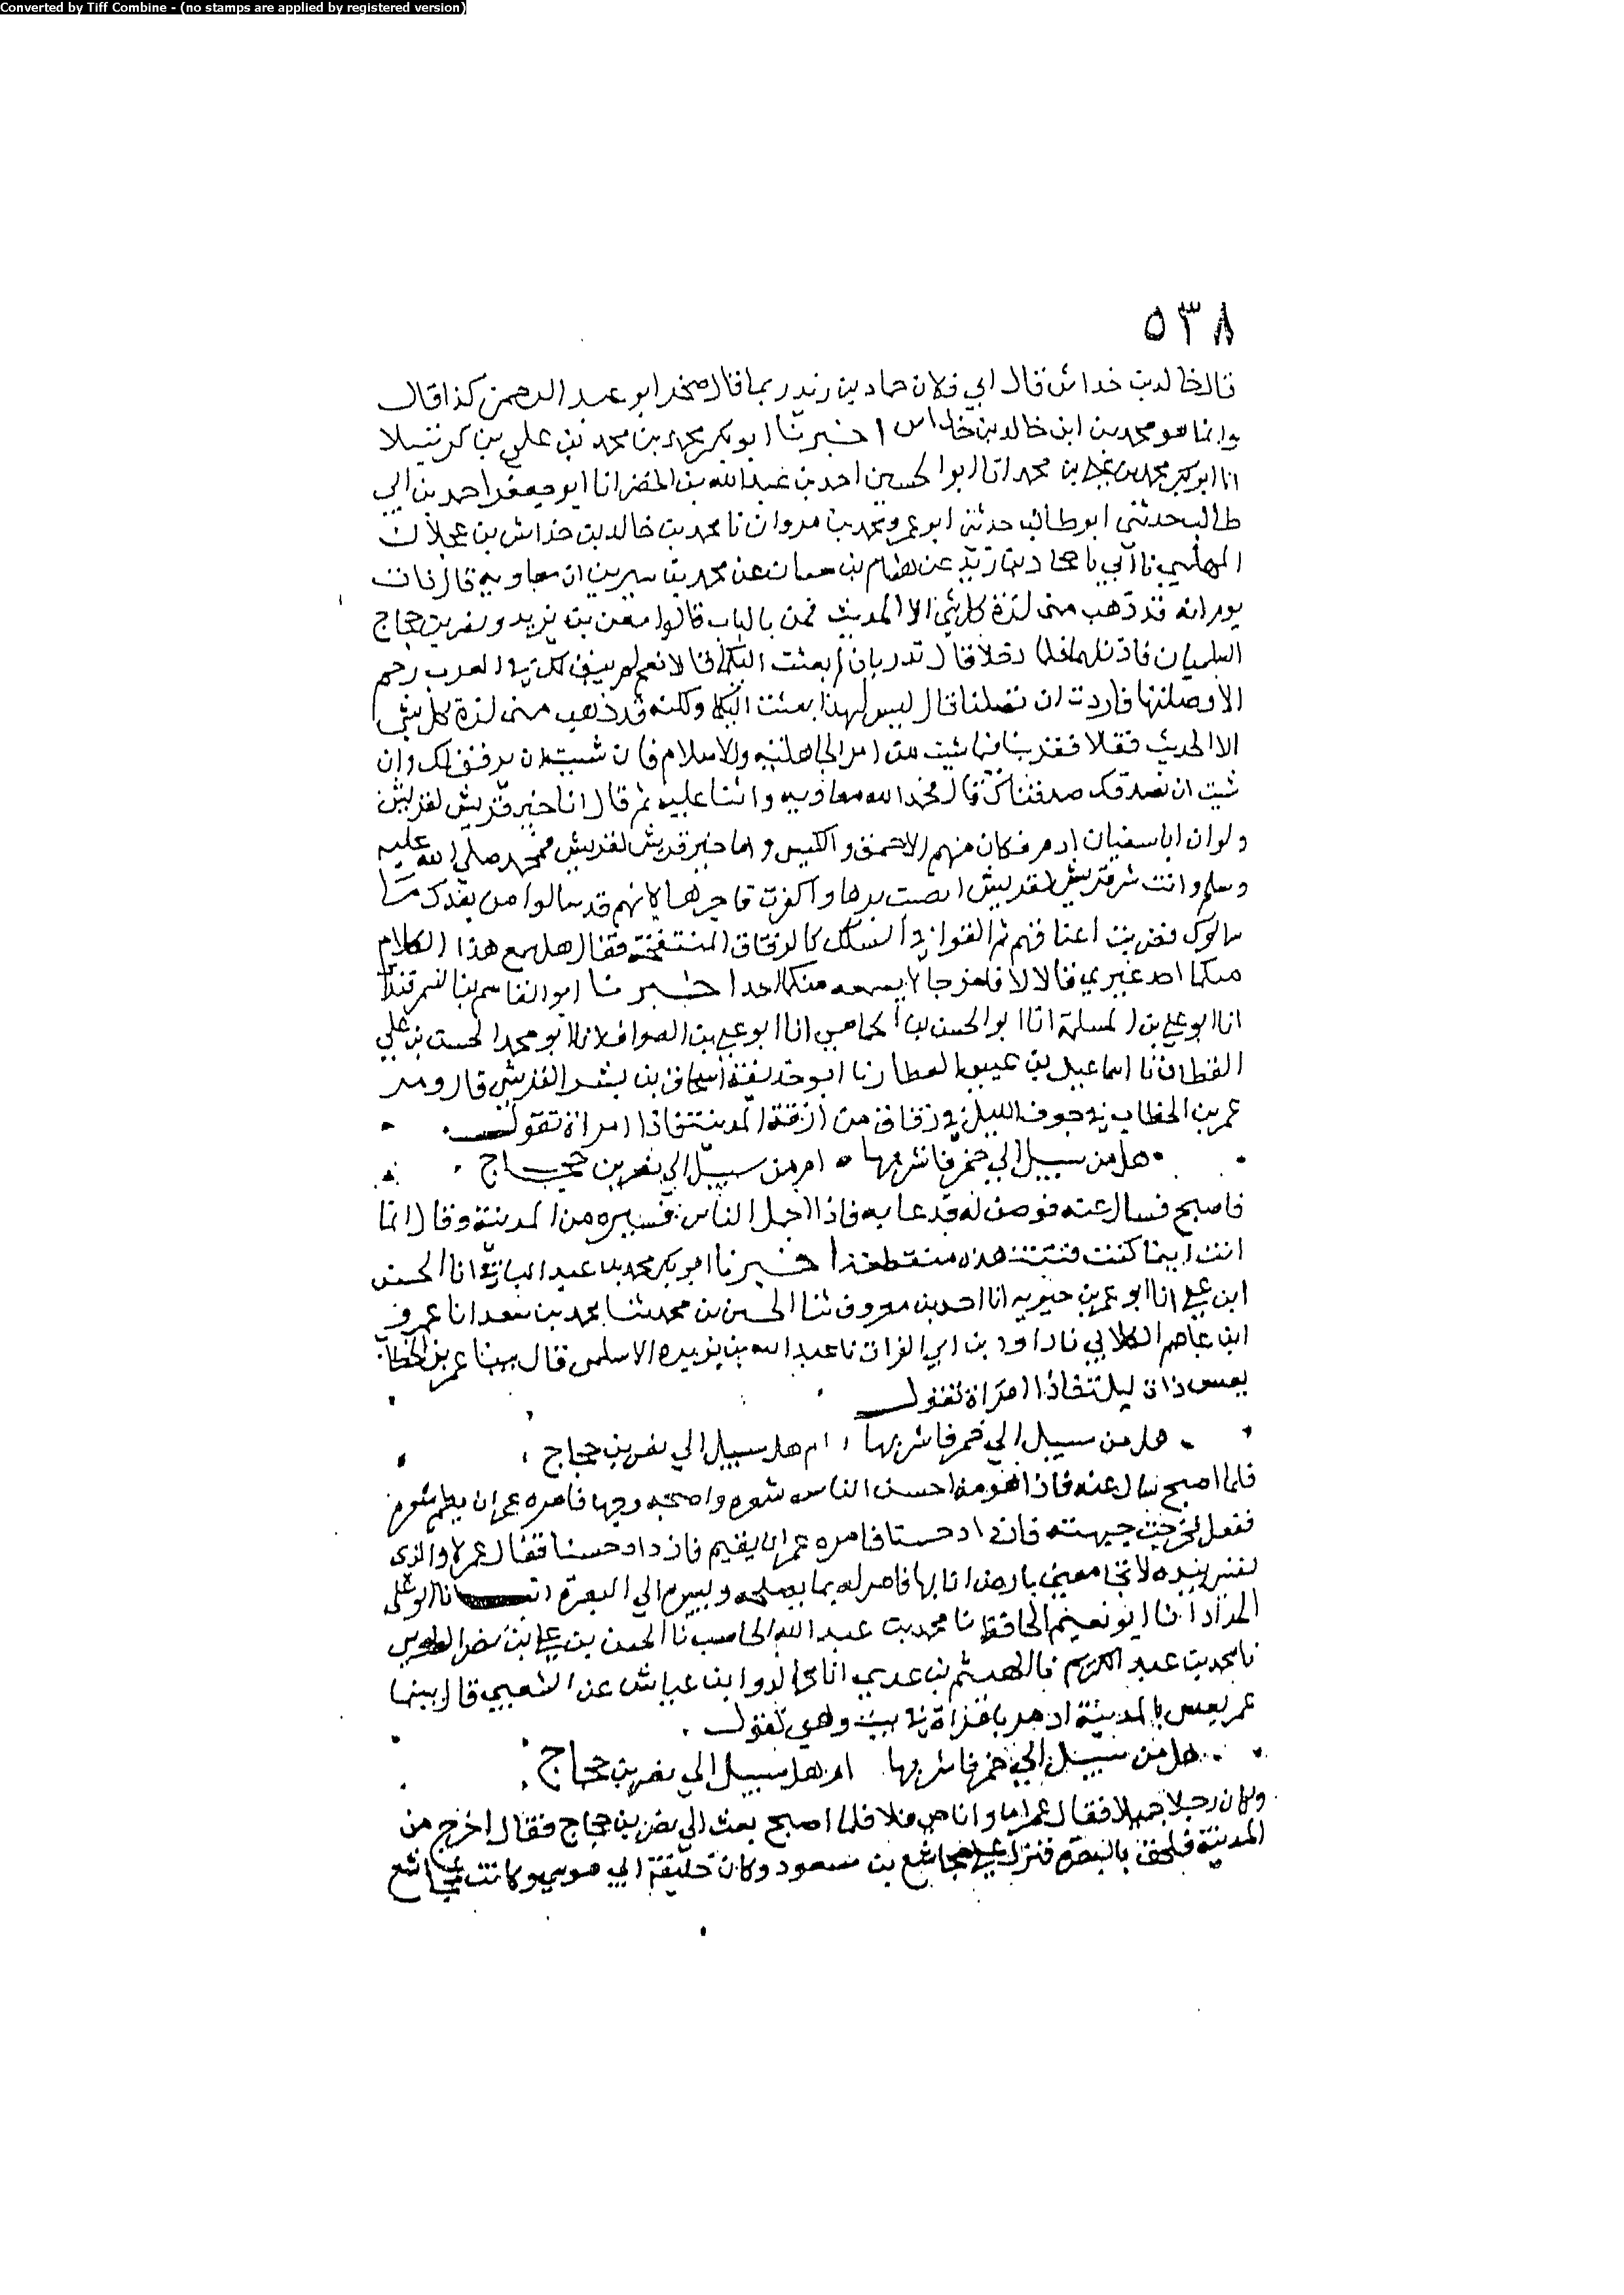 Converted by Tiff Combine - (no stamps are applied by registered version)
٥٣٨
قال خالد بن خداش قال ابي فلان حماد بن زيد ربما قال صخر ابو عبد الرحمن كذا قال
وانما هو محمد بن خالد بن خداش اخبرنا ابو بكر محمد بن محمد بن علي بن كرتيلا
انا ابو بكر محمد بن علي بن محمد انا ابو الحسين احمد بن عبد الله بن الخضر انا ابو جعفر احمد بن ابي
طالب حدثني ابو طالب حدثني ابو عمرو محمد بن مروان نا محمد بن خالد بن خداش بن عجلان
المهلبي نا ابي نا حماد بن زيد عن هشام بن حسان عن محمد بن سيرين ان معاوية قال ذات
يوم انه قد ذهب مني لذة كل شي الا الحديث فمن بالباب قالوا معن بن يزيد ونصر بن حجاج
السلميان فاذن لهما فلما دخلا قال تدريان لم بعثت اليكما قالا نعم لم يبق لك في العرب رحم
الا وصلتها فاردت ان تصلنا قال ليس لهذا بعثت اليكما ولكنه قد ذهب مني لذة كل شي
الا الحديث فقالا فقربنا فيما شيت من امر الجاهلية والاسلام فان شيت ان نرفق بك وان
شيت ان نصدقك صدقناك قال فحمد الله معاوية واثنا عليه ثم قال انا خير قريش لقريش
ولو ان ابا سفيان ادم فكان منهم الاحمق والكيس واما خير قريش لقريش فمحمد صلي الله عليه
وسلم وانت شر قريش لقريش برها واكفرت فاجرها لانهم قد سالوا من بعدك ما
سالوك اعناقهم ثم القوا في السكك كالزقاق المنتفخة فقال هل سمع هذا الكلام
منكما احد غيري قالا لا قال فاخرجا لا يسمعه منكما احد اخبرنا ابو القاسم بن السمرقندي
انا ابو علي بن المسلمة انا ابو الحسن بن الحمامي انا ابو علي بن الصواف انا ابو محمد الحسن بن علي
القطان نا اسماعيل بن عيسى العطار نا ابو حذيفة اسحاق بن بشر القرشي قال ومر
عمر بن الخطاب في جوف الليل في زقاق من ازقة المدينة فاذا امراة تقول
هل من سبيل الي خمر فاشربها ام من سبيل الي نصر بن حجاج
فاصبح فسال عنه فوصف له فدعا به فاذا اجمل الناس فسيره من المدينة وقال انما
انت اينما كنت فتنة هذه منقطعة اخبرنا ابو بكر محمد بن عبد الباقي انا الحسن
ابن علي انا ابو عمر بن حيويه انا احمد بن معروف نا الحسين بن محمد نا محمد بن سعد انا عمرو
ابن عاصم الكلابي نا داود بن ابي الفرات نا عبد الله بن بريده الاسلمي قال بينا عمر بن الخطاب
يعس ذات ليلة فاذا امراة تقول
هل من سبيل الي خمر فاشربها ام هل سبيل الي نصر بن حجاج
فلما اصبح سال عنه فاذا هو من احسن الناس شعرا واصبحه وجها فامره عمر ان يطم شعره
ففعل فخرجت جبهته فازداد حسنا فامره عمر ان يعتم فازداد حسنا فقال عمر لا والذي
نفسي بيده لا تجامعني بارض انا بها فامر له بما يصلحه وسيره الي البصرة انا ابو علي
الحداد انا ابو نعيم الحافظ نا محمد بن عبد الله الحاسب نا الحسن بن علي بن نصر الطوسي
نا محمد بن عبد الكريم قال الهيثم بن عدي انا مجالد وابن عياش عن الشعبي قال بينما
عمر يعس بالمدينة اذ مر بامراة في بيت وهي تقول
هل من سبيل الي خمر فاشربها ام هل سبيل الي نصر بن حجاج
وكان رجلا جميلا فقال عمر اما وانا حي فلا فلما اصبح بعث الي نصر بن حجاج فقال اخرج من
المدينة فلحق بالبصرة فنزل علي مجاشع بن مسعود وكان خليفة ابي موسي وكانت لمجاشع